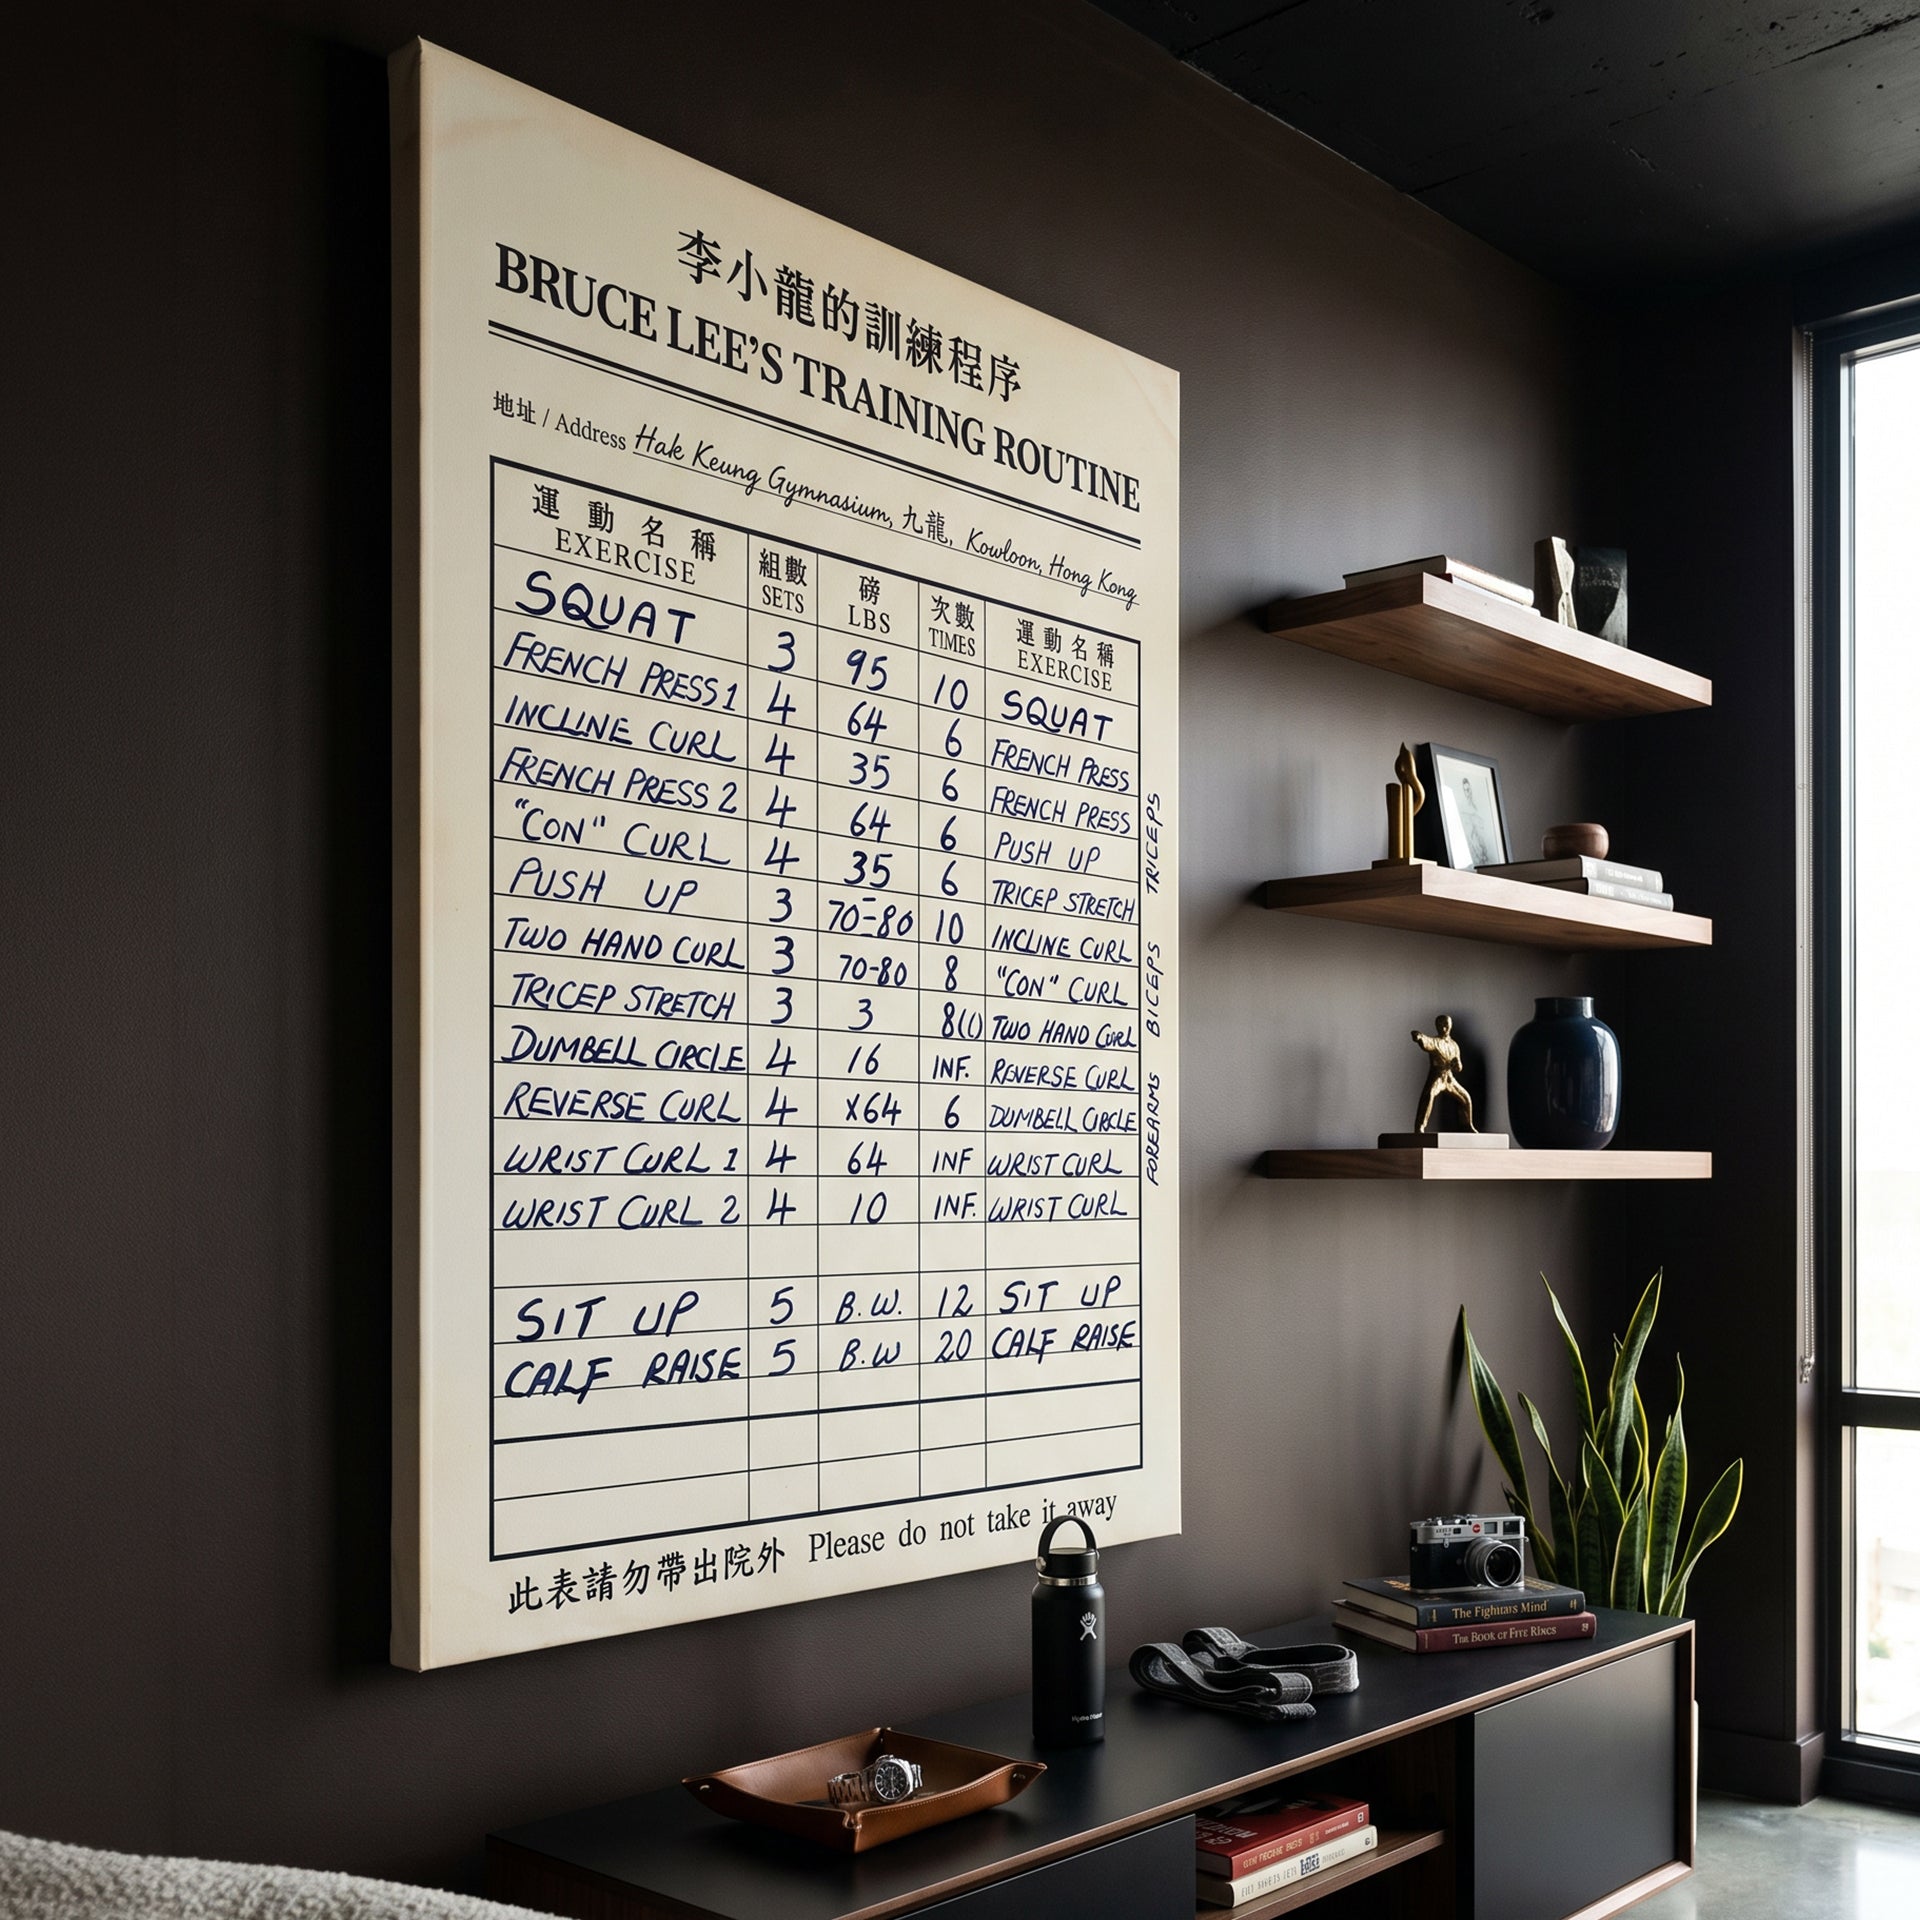 李小龍的訓練程序
BRUCE LEE'S TRAINING ROUTINE
地址 / Address Hak Keung Gymnasium, 九龍, Kowloon, Hong Kong
運動名稱 組數 磅 次數 運動名稱
EXERCISE SETS LBS TIMES EXERCISE
SQUAT 3 95 10 SQUAT
FRENCH PRESS 1 4 64 6 FRENCH PRESS
INCLINE CURL 4 35 6 FRENCH PRESS
FRENCH PRESS 2 4 64 6 PUSH UP
"CON" CURL 4 35 6 TRICEP STRETCH
PUSH UP 3 70-80 10 INCLINE CURL
TWO HAND CURL 3 70-80 8 "CON" CURL
TRICEP STRETCH 3 3 8(1) TWO HAND CURL
DUMBELL CIRCLE 4 16 INF. REVERSE CURL
REVERSE CURL 4 X64 6 DUMBELL CIRCLE
WRIST CURL 1 4 64 INF WRIST CURL
WRIST CURL 2 4 10 INF. WRIST CURL
SIT UP 5 B.W. 12 SIT UP
CALF RAISE 5 B.W 20 CALF RAISE
TRICEPS
BICEPS
FOREARMS
此表請勿帶出院外 Please do not take it away
The Fightars Mind
The Book of Five Rings